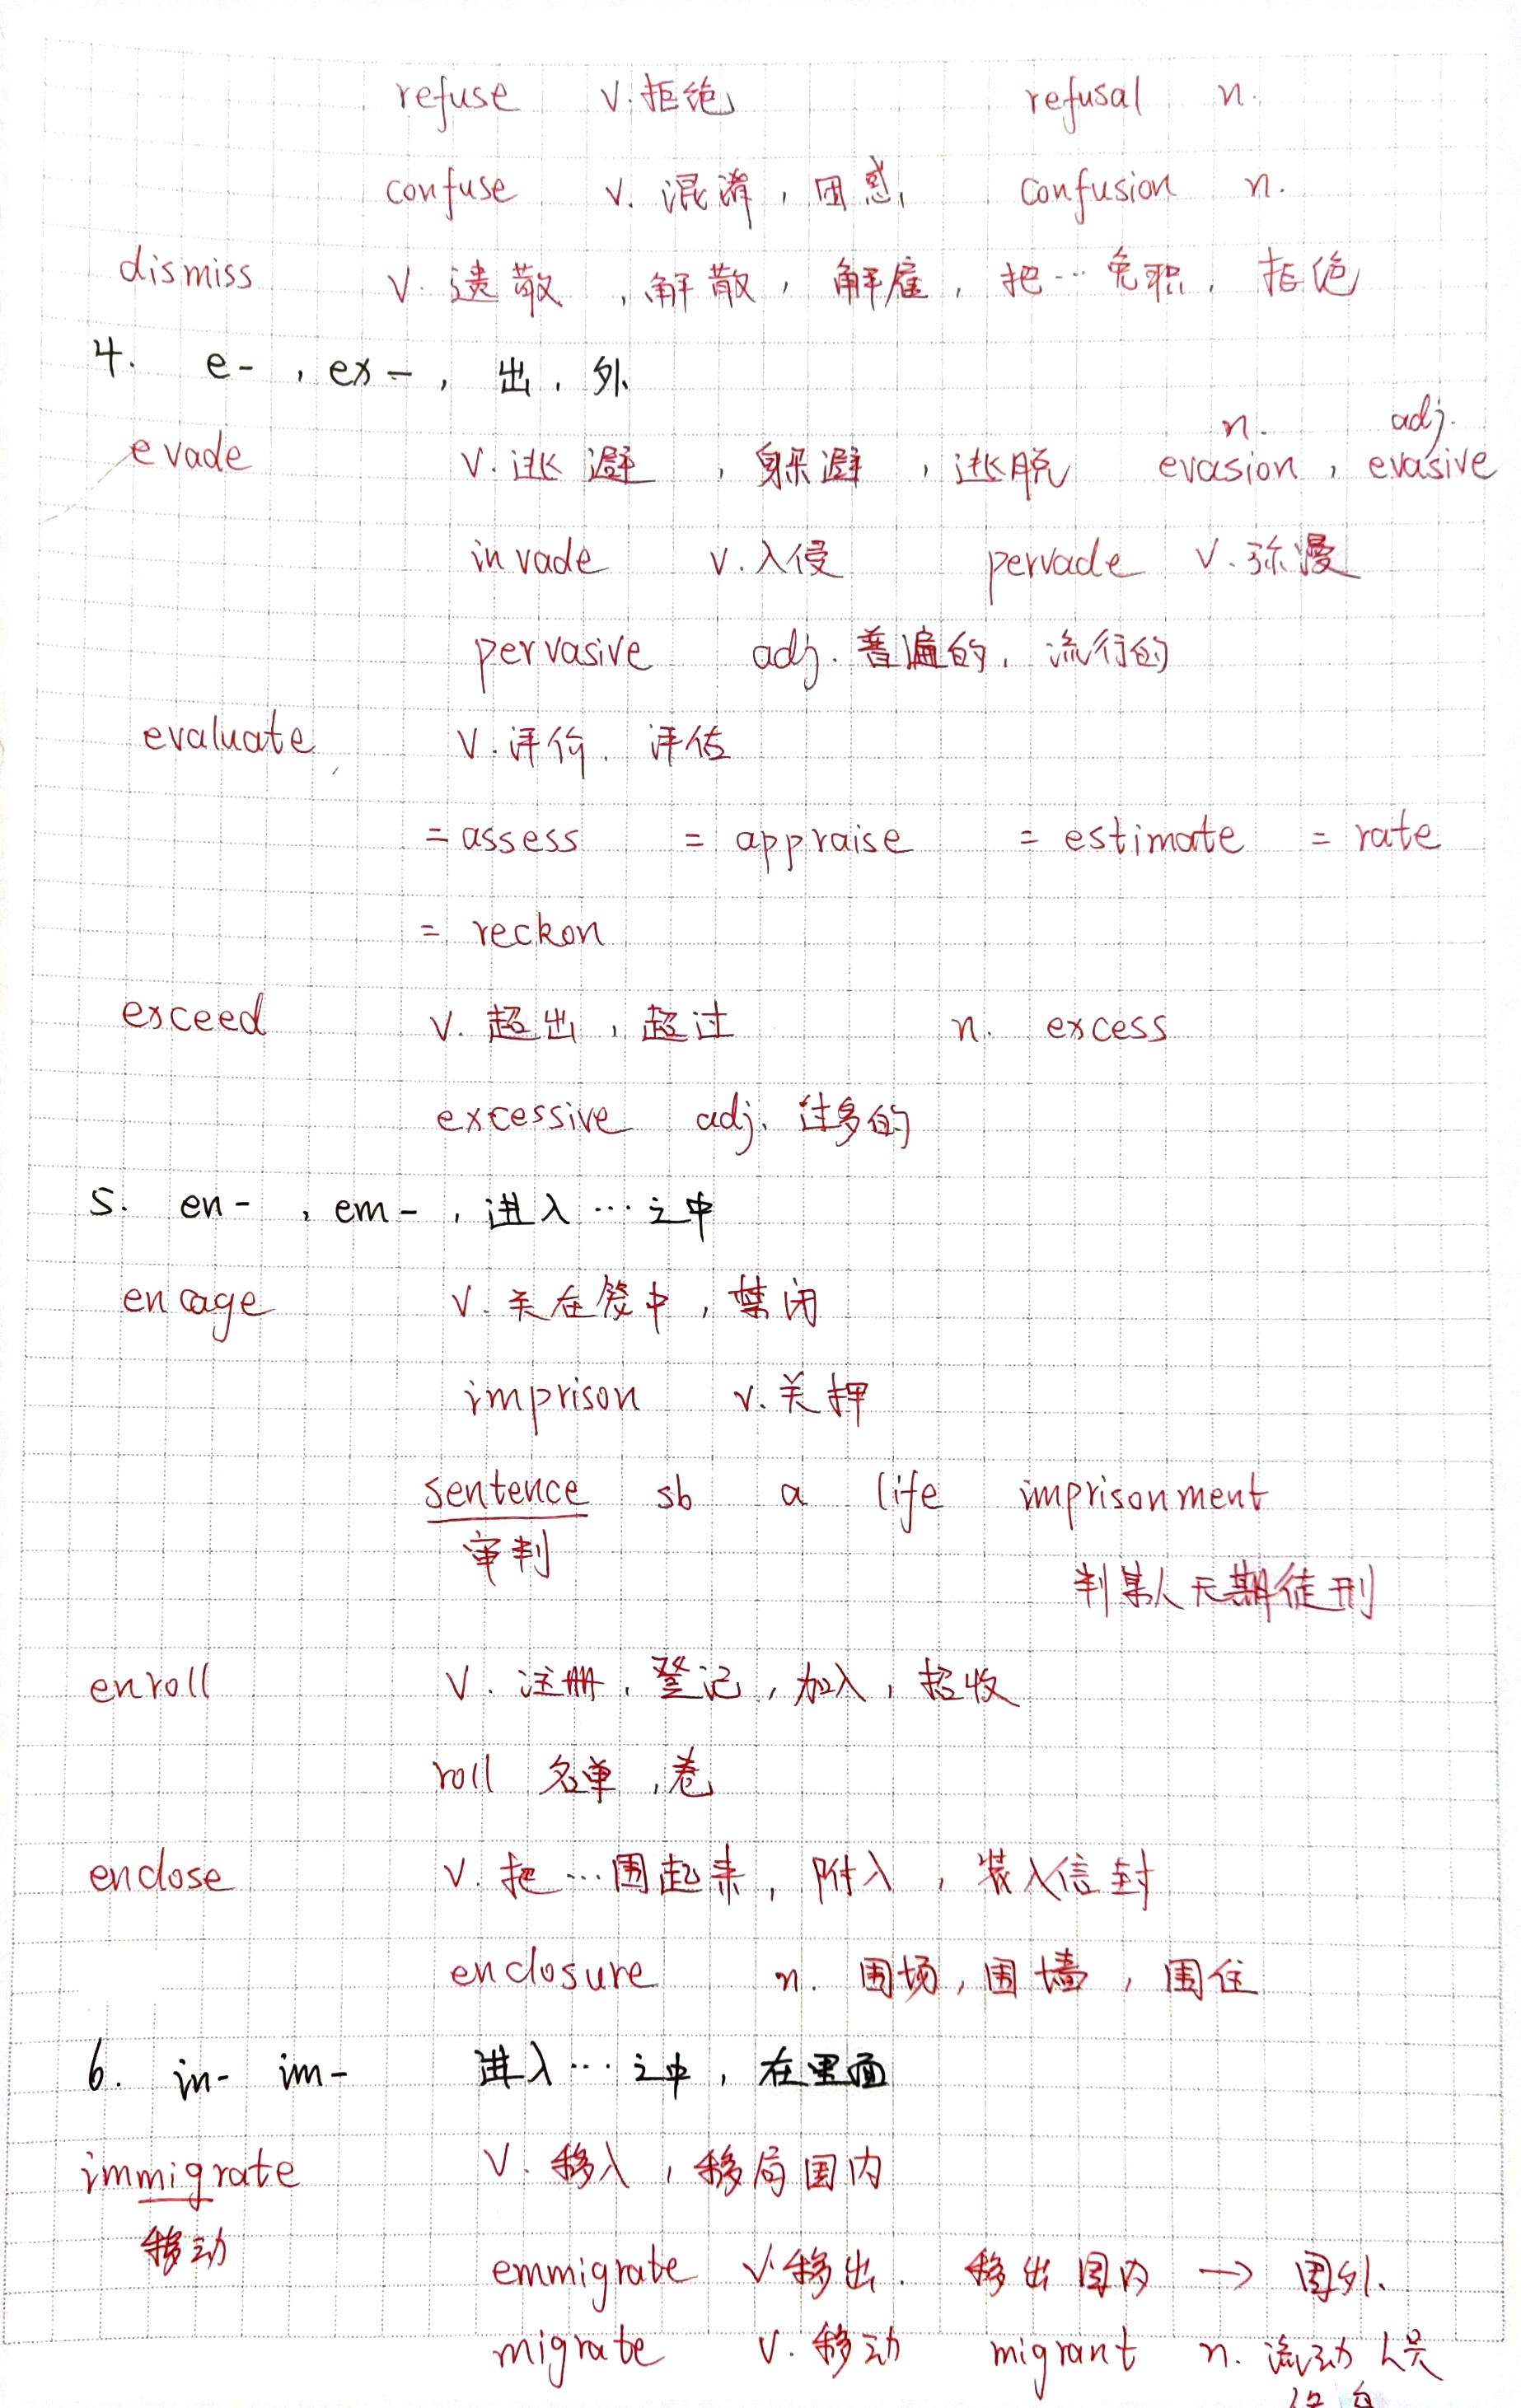 refuse v.拒绝 refusal n.
confuse v. 混淆，困惑， confusion n.
dismiss v. 遣散，解散，解雇，把…免职，拒绝
4. e-，ex-，出，外
n. adj.
evade v.逃避，躲避，逃脱 evasion，evasive
invade v.入侵 pervade v.弥漫
pervasive adj.普遍的，流行的
evaluate v.评价，评估
= assess = appraise = estimate = rate
= reckon
exceed v. 超出，超过 n. excess
excessive adj. 过多的
5. en-，em-，进入…之中
encage v.关在笼中，禁闭
imprison v.关押
sentence sb a life imprisonment
审判
判某人无期徒刑
enroll v. 注册，登记，加入，招收
roll 名单，卷
enclose v. 把…围起来，附入，装入信封
enclosure n. 围场，围墙，围住
6. in- im- 进入…之中，在里面
immigrate v. 移入，移局国内
移动
emmigrate v.移出. 移出国内 → 国外.
migrate v. 移动 migrant n. 流动人员